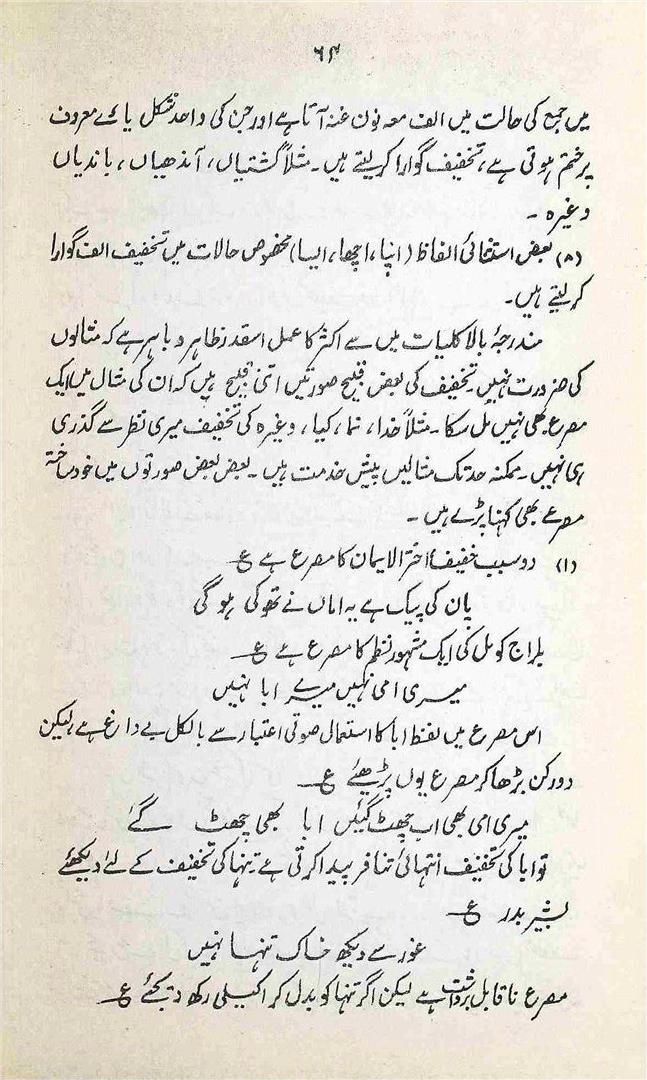 ۶۴
میں جمع کی حالت میں الف معہ نون غنہ آتا ہے اور جن کی واحد شکل یائے معروف
پر ختم ہوتی ہے، تخفیف گوارا کر لیتے ہیں۔ مثلاً کشتیاں، آندھیاں، باندیاں
وغیرہ۔
(۸) بعض استثنائی الفاظ (اپنا، اچھا، ایسا) مخصوص حالات میں تخفیف الف گوارا
کر لیتے ہیں۔
مندرجۂ بالا کلیات میں سے اکثر کا عمل اسقدر ظاہر و باہر ہے کہ مثالوں
کی ضرورت نہیں۔ تخفیف کی بعض قبیح صورتیں اتنی قبیح ہیں کہ ان کی مثال میں ایک
مصرع بھی نہیں مل سکا۔ مثلاً خدا، نما، کیا، وغیرہ کی تخفیف میری نظر سے گذری
ہی نہیں۔ ممکنہ حد تک مثالیں پیش خدمت ہیں۔ بعض بعض صورتوں میں خود ساختہ
مصرعے بھی کہنا پڑے ہیں۔
(۱) دو سبب خفیف: اختر الایمان کا مصرع ہے ع
پان کی پیک ہے یہ اماں نے تھوکی ہوگی
بلراج کومل کی ایک مشہور نظم کا مصرع ہے ع
میری امی نہیں میرے ابا نہیں
اس مصرع میں لفظ ابا کا استعمال صوتی اعتبار سے بالکل بے داغ ہے، لیکن
دو رکن بڑھا کر مصرع یوں پڑھیئے ع
میری امی بھی اب چھٹ گئیں ابا بھی چھٹ گئے
تو ابا کی تخفیف انتہائی تنافر پیدا کرتی ہے۔ تنہا کی تخفیف کے لئے دیکھئے
بشیر بدر ع
غور سے دیکھ خاک تنہا نہیں
مصرع ناقابل برداشت ہے لیکن اگر تنہا کو بدل کر اکیلی رکھ دیجئے ع